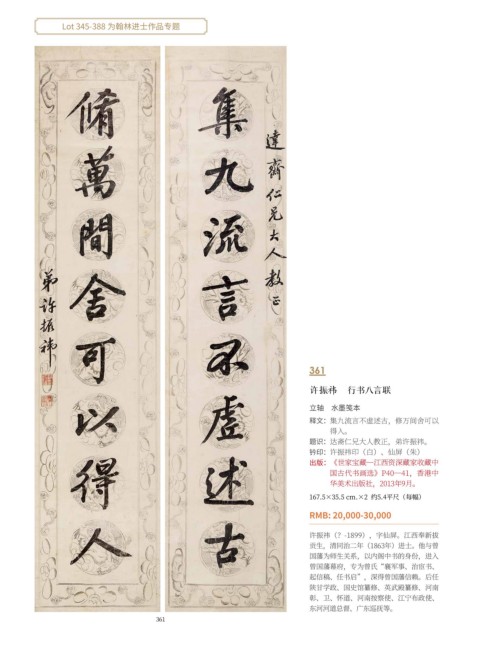 Lot 345-388 为翰林进士作品专题
達齋仁兄大人教正
集九流言不虛述古
脩萬間舍可以得人
弟許振禕
361
许振祎 行书八言联
立轴 水墨笺本
释文：集九流言不虚述古，修万间舍可以
得人。
题识：达斋仁兄大人教正，弟许振祎。
钤印：许振祎印（白）、仙屏（朱）
出版：《世家宝藏—江西资深藏家收藏中
国古代书画选》P40—41，香港中
华美术出版社，2013年9月。
167.5×35.5 cm.×2 约5.4平尺（每幅）
RMB: 20,000-30,000
许振祎（？-1899），字仙屏。江西奉新拔
贡生，清同治二年（1863年）进士。他与曾
国藩为师生关系，以内阁中书的身份，进入
曾国藩幕府，专为曾氏“襄军事、治官书、
起信稿、任书启”，深得曾国藩信赖。后任
陕甘学政、国史馆纂修、英武殿纂修、河南
彰、卫、怀道、河南按察使、江宁布政使、
东河河道总督、广东巡抚等。
361